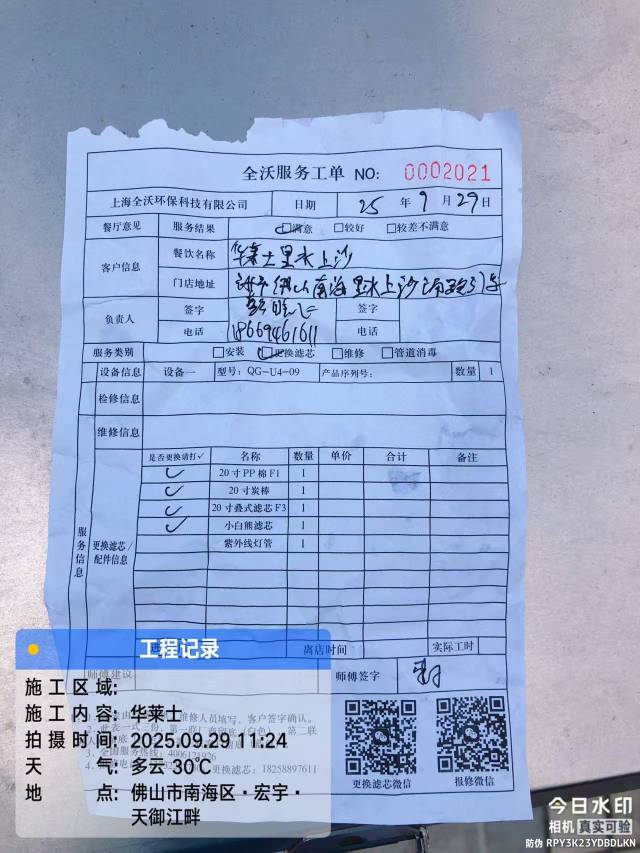 全沃服务工单 NO: 0002021
上海全沃环保科技有限公司 日期 25 年 9 月 29 日
餐厅意见 服务结果 □满意 □较好 □较差不满意
客户信息 餐饮名称 华莱士里水上沙
门店地址 佛山南海里水上沙
负责人 签字 签字
电话 18669461611 电话
服务类别 □安装 □更换滤芯 □维修 □管道消毒
设备信息 设备一 型号: QG-U4-09 产品序列号: 数量 1
检修信息
维修信息
服务信息
更换滤芯/配件信息
是否更换请打✓ 名称 数量 单价 合计 备注
✓ 20寸PP棉F1 1
✓ 20寸炭棒 1
✓ 20寸叠式滤芯F3 1
✓ 小白熊滤芯 1
紫外线灯管 1
离店时间 实际工时
师傅建议 师傅签字
维修人员填写，客户签字确认。
此表一式三份，第一联厂商留底（白色） 第二联
全国服务热线: 4006171926
更换滤芯: 18258897611
更换滤芯微信 报修微信
工程记录
施工区域:
施工内容: 华莱士
拍摄时间: 2025.09.29 11:24
天 气: 多云 30℃
地 点: 佛山市南海区·宏宇·
天御江畔
今日水印
相机 真实可验
防伪 RPY3K23YDBDLKN